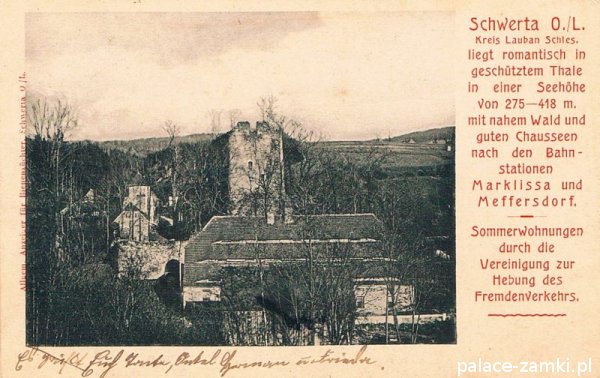 Schwerta O./L.
Kreis Lauban Schles.
liegt romantisch in
geschütztem Thale
in einer Seehöhe
von 275—418 m.
mit nahem Wald und
guten Chausseen
nach den Bahn-
stationen
Marklissa und
Meffersdorf.
Sommerwohnungen
durch die
Vereinigung zur
Hebung des
Fremdenverkehrs.
Schwerta O/L.
Es grüßt Euch Tante, Onkel Herman u. Frieda.
palace-zamki.pl